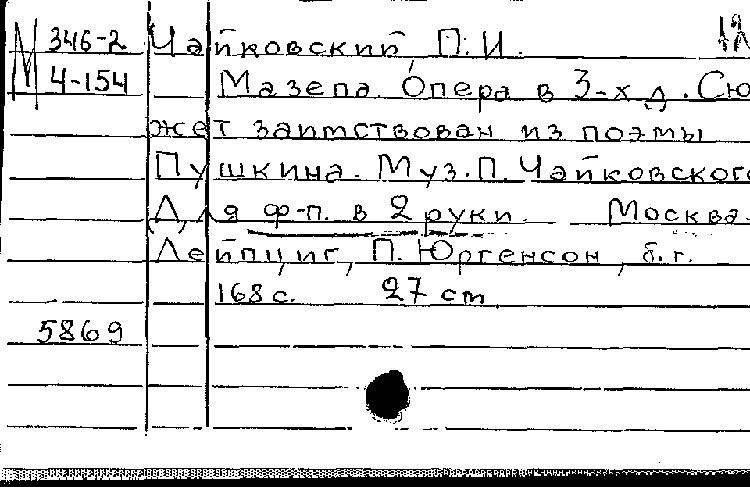 М 346-2 Чайковский, П. И. 12
4-154 Мазепа. Опера в 3-х д. Сю
жет заимствован из поэмы
Пушкина. Муз. П. Чайковского
Для ф-п. в 2 руки. Москва.
Лейпциг, П. Юргенсон, б. г.
168 с. 27 cm
5869